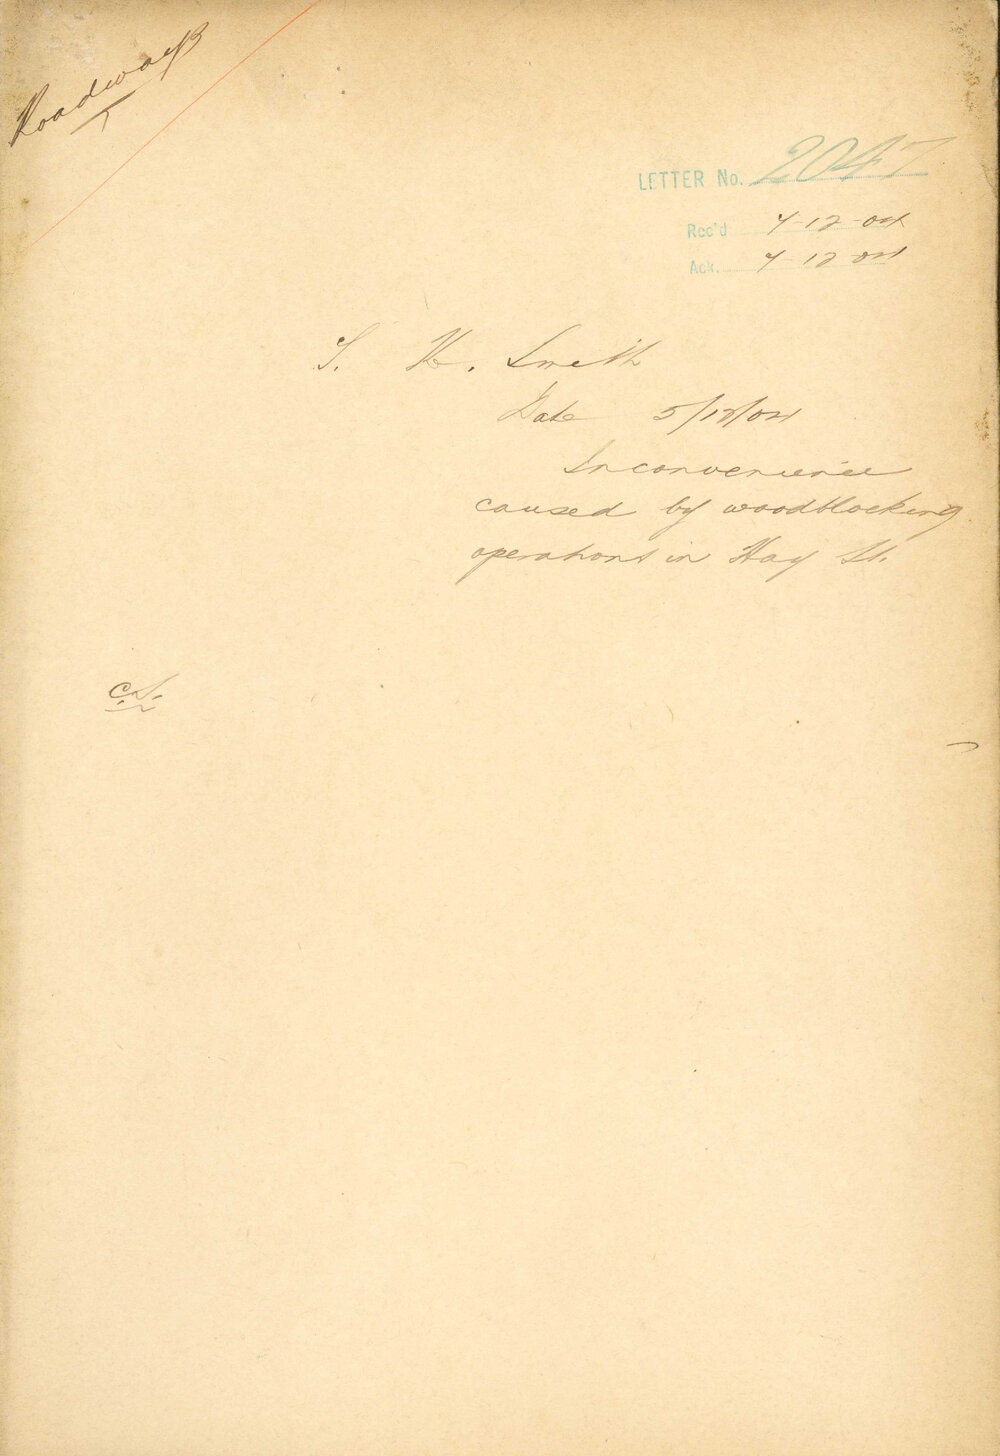 Roadways
LETTER No. 2047
Rec'd 7-12-04
Ack. 7-12-04
T. H. Smith
Date 5/12/04
Inconvenience
caused by woodblocking
operations in Hay St.